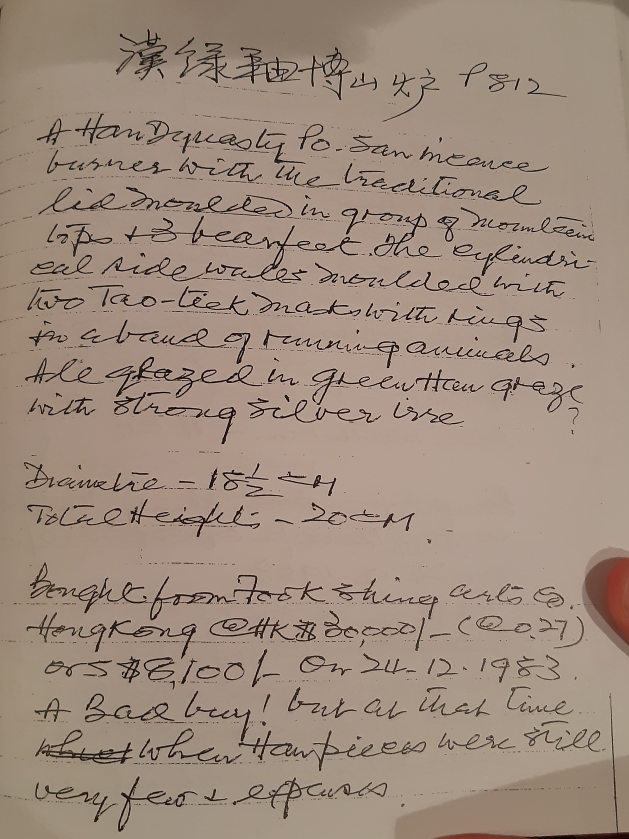 漢綠釉博山炉 P812
A Han Dynasty Po-San incence
burner with the traditional
lid moulded in group of mountain
tops + 3 bear feet. The cylindri-
cal side walls moulded with
two Tao-tieh masks with rings
in a band of running animals.
All glazed in green Han graze
with strong silver irre
?
Diametre - 18 1/2 cM
Total Height: - 20 cM.
Bought from Fook Shing arts Co.
HongKong @ HK$30,000/- (@ 0.27)
or S$8,100/- On 24-12-1983.
A Bad buy! but at that time
when Han pieces were still
very few +